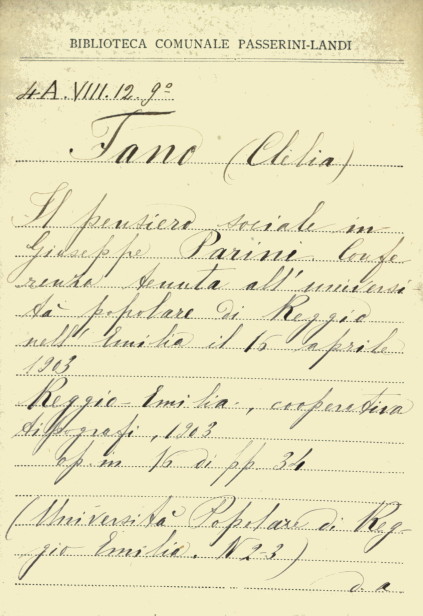 BIBLIOTECA COMUNALE PASSERINI-LANDI
4A.VIII.12.9º
Fano (Clelia)
Il pensiero sociale in
Giuseppe Parini. Confe
renza tenuta all'universi
tà popolare di Reggio
nell'Emilia il 16 aprile
1903
Reggio-Emilia, cooperativa
tipografi, 1903
op. in 16 di pp 34
(Università Popolare di Reg-
gio Emilia. N 2-3)
d. a.